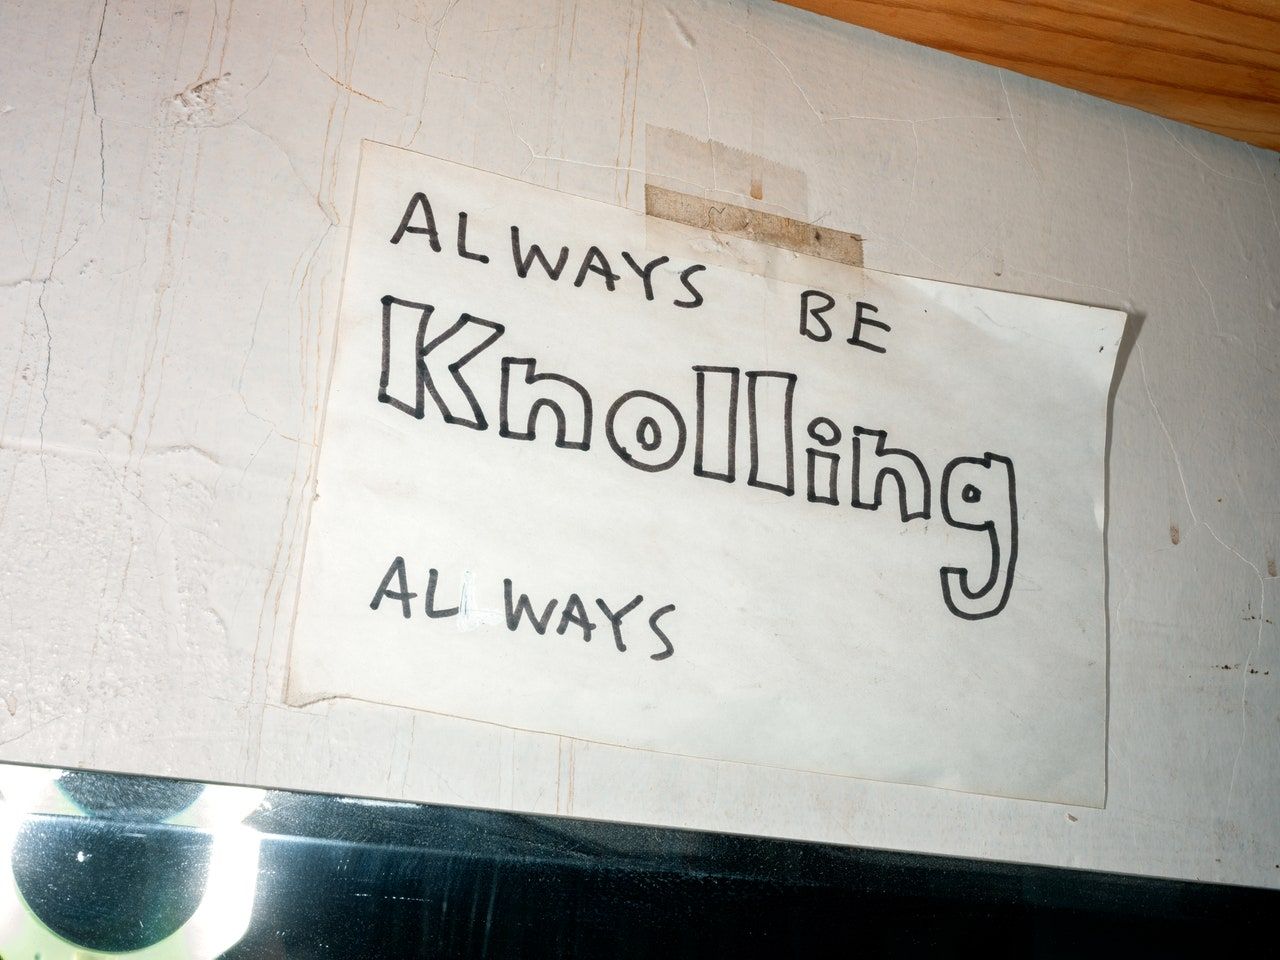 ALWAYS BE
Knolling
ALWAYS